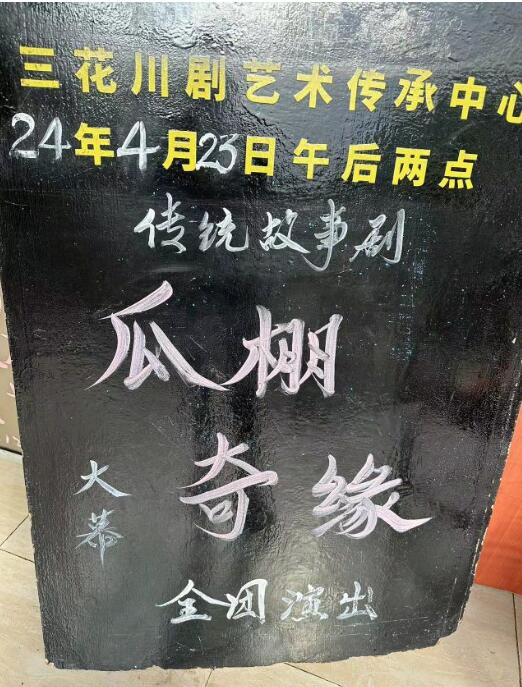 三花川剧艺术传承中心
24年4月23日午后两点
传统故事剧
瓜棚
奇缘
大幕
全团演出